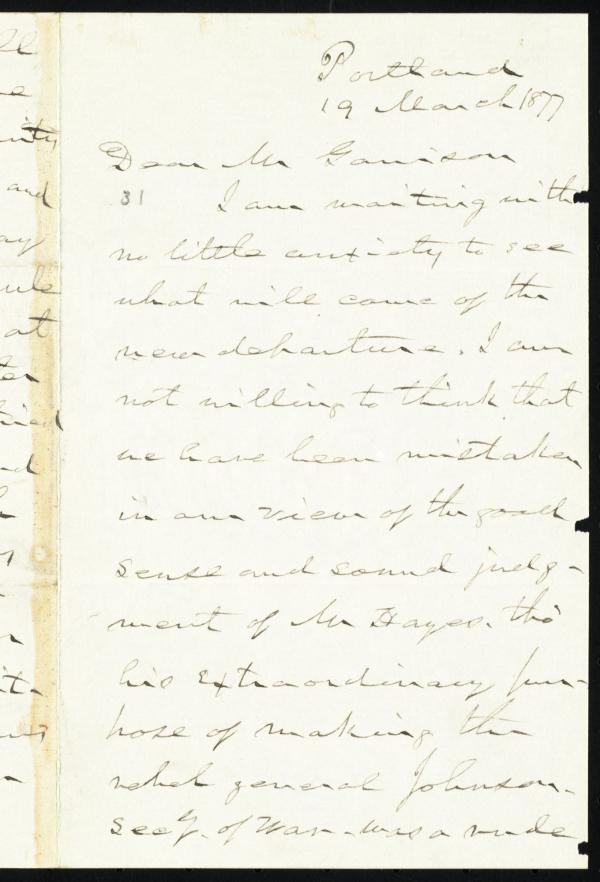 Portland
19 March 1877
Dear Mr Garrison
31 I am waiting with
no little anxiety to see
what will come of the
new departure. I am
not willing to think that
we have been mistaken
in our view of the good
sense and sound judg-
ment of Mr Hayes. tho'
his extraordinary pur-
pose of making the
rebel general Johnson -
Secy. of War - was a rude
ity
and
ay
ule
at